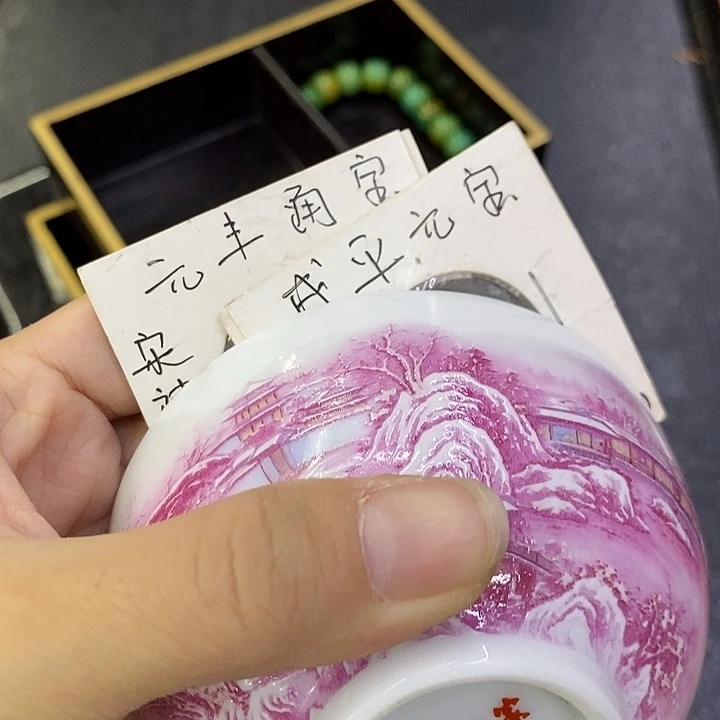 元丰通宝
宋
咸平元宝